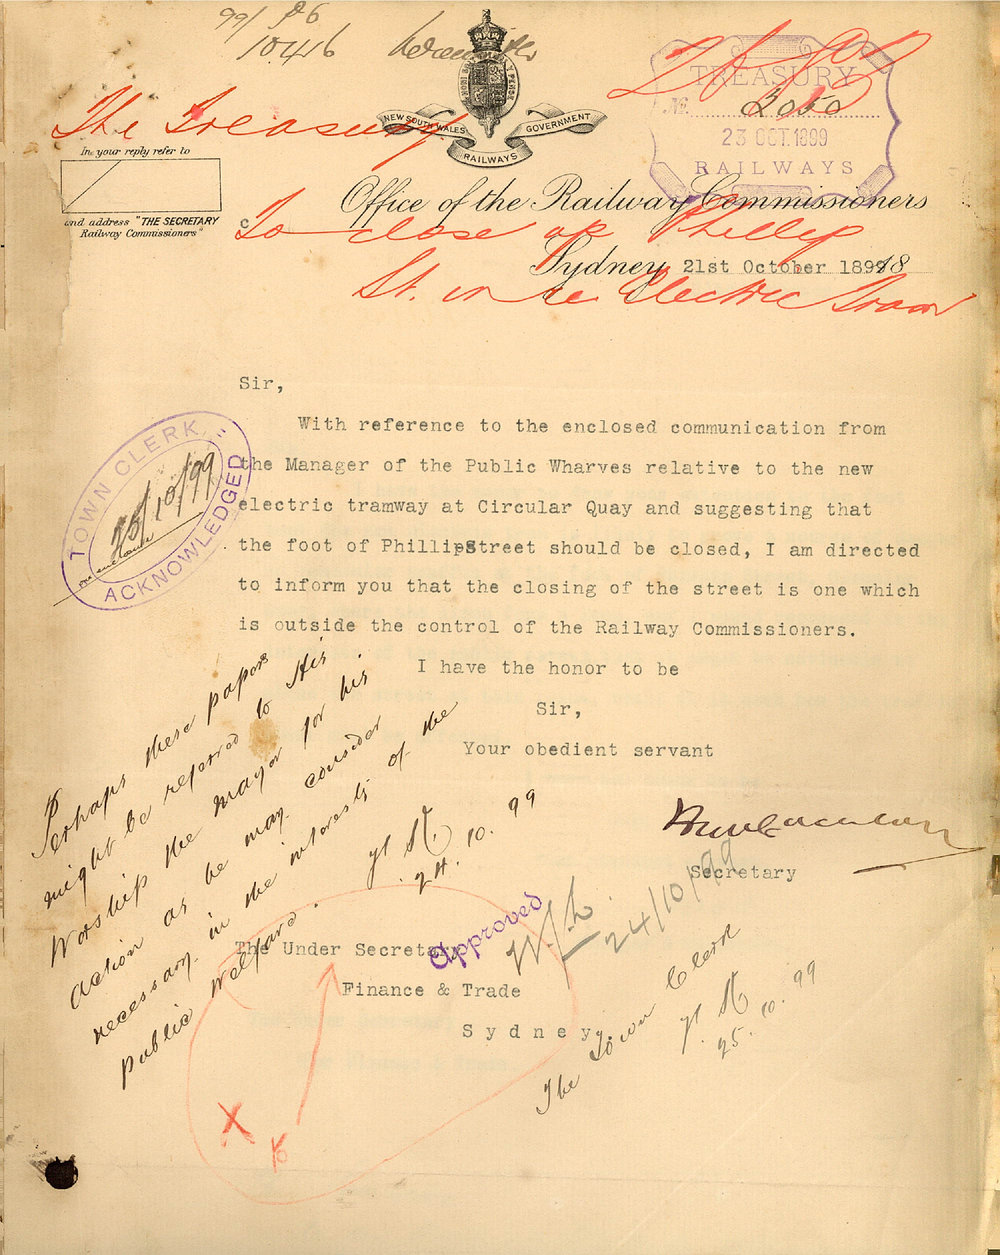 99/
10446
NEW SOUTH WALES GOVERNMENT
RAILWAYS
TREASURY
No. 3050
23 OCT. 1899
RAILWAYS
The Treasury
In your reply refer to
and address "THE SECRETARY
Railway Commissioners"
Office of the Railway Commissioners
To close up Phillip
Sydney, 21st October 1899
St. in re Electric Tram
Sir,
With reference to the enclosed communication from
the Manager of the Public Wharves relative to the new
electric tramway at Circular Quay and suggesting that
the foot of Phillip Street should be closed, I am directed
to inform you that the closing of the street is one which
is outside the control of the Railway Commissioners.
I have the honor to be
Sir,
Your obedient servant
Secretary
The Under Secretary
Finance & Trade
Sydney.
TOWN CLERK
25/10/99
ACKNOWLEDGED
Perhaps these papers
might be referred to His
Worship the Mayor for his
action as he may consider
necessary in the interests of the
public welfare.
24.10.99
Approved
24/10/99
The Town Clerk
25.10.99